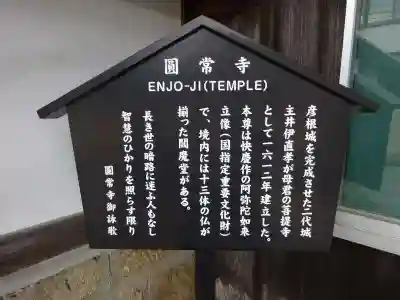 圓常寺
ENJO-JI(TEMPLE)
彦根城を完成させた二代城
主井伊直孝が母君の菩提寺
として一六一二年建立した。
本尊は快慶作の阿弥陀如来
立像(国指定重要文化財)
で、境内には十三体の仏が
揃った閻魔堂がある。
長き世の暗路に迷ふ人もなし
智慧のひかりを照らす限り
圓常寺御詠歌